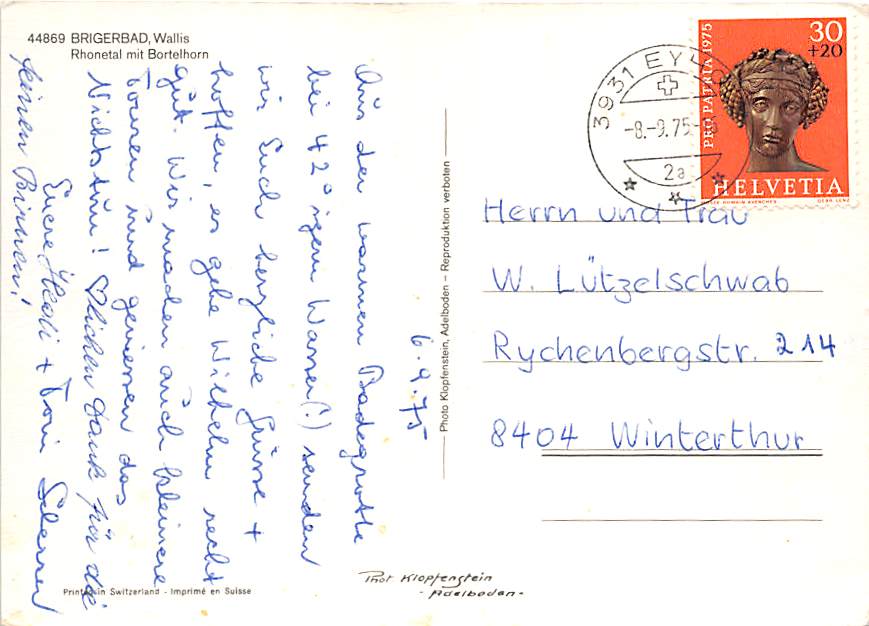 44869 BRIGERBAD, Wallis
Rhonetal mit Bortelhorn
6.9.75
Aus der warmen Badegrotte
bei 42° igem Wasser(!) senden
wir Euch herzliche Grüsse +
hoffen, es gehe Wilhelm recht
gut. Wir machen auch kleinere
Touren und geniessen das
Nichtstun! ♡lichen Dank für die
feinen Birnen!
Eure Hedi + Toni Scherrer
Photo Klopfenstein, Adelboden – Reproduktion verboten
Printed in Switzerland - Imprimé en Suisse
Phot Klopfenstein
- Adelboden -
3931 EY
-8.-9.75-
2a
PRO PATRIA 1975
30
+20
HELVETIA
Herrn und Frau
W. Lützelschwab
Rychenbergstr. 214
8404 Winterthur